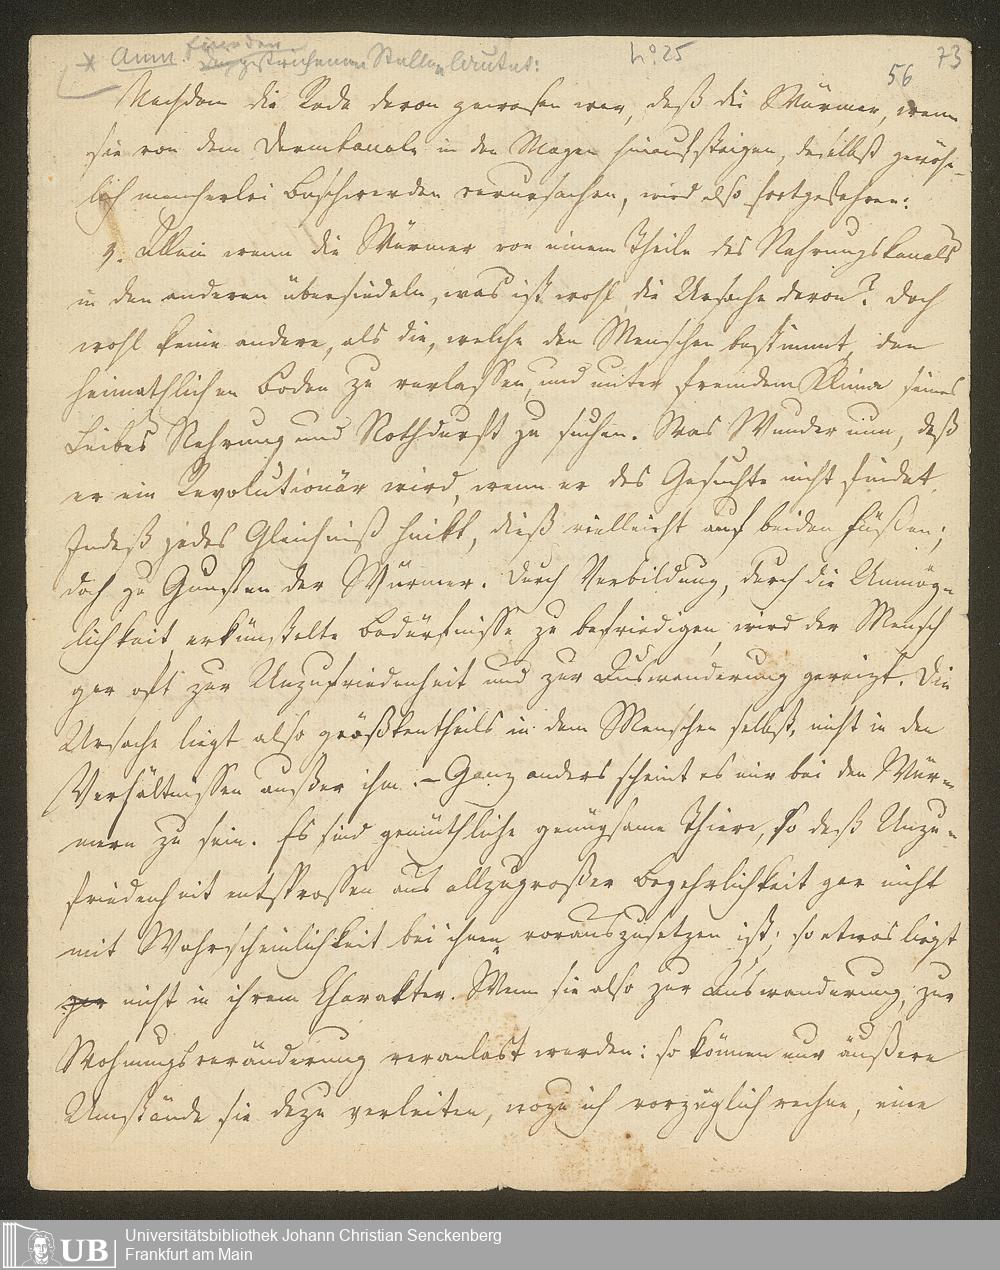 * Anm.
gestrichenen Stellen lautet:
No. 25
73
56
Nachdem die Rede davon gewesen war, daß die Würmer, wenn
sie von dem Darmkanale in den Magen hinaufsteigen, daselbst gewöhn-
lich mancherlei Beschwerden verursachen, wird also fortgefahren:
Allein wenn die Würmer von einem Theile des Nahrungskanals
in den anderen übersiedeln, was ist wohl die Ursache davon? Doch
wohl keine andere, als die, welche den Menschen bestimmt, den
heimathlichen Boden zu verlassen, und unter fremdem Klima seines
Leibes Nahrung und Nothdurft zu suchen. Was Wunder nun, daß
er ein Revolutionär wird, wenn er das Gesuchte nicht findet.
Indeß jedes Gleichniß hinkt, dieß vielleicht auf beiden Füßen;
doch zu Gunsten der Würmer. Durch Verbildung, durch die Unmög-
lichkeit erkünstelte Bedürfnisse zu befriedigen, wird der Mensch
gar oft zur Unzufriedenheit und zur Auswanderung gereizt. Die
Ursache liegt also größtentheils in dem Menschen selbst, nicht in den
Verhältnissen außer ihm. – Ganz anders scheint es mir bei den Wür-
mern zu sein. Es sind gemüthliche genügsame Thiere, so daß Unzu-
friedenheit entsprossen aus allzugroßer Begehrlichkeit gar nicht
mit Wahrscheinlichkeit bei ihnen vorauszusetzen ist; so etwas liegt
gar nicht in ihrem Charakter. Wenn sie also zur Auswanderung, zur
Wohnungsveränderung veranlast werden: so können nur äußere
Umstände sie dazu verleiten, wozu ich vorzüglich rechne, eine
UB
Universitätsbibliothek Johann Christian Senckenberg
Frankfurt am Main